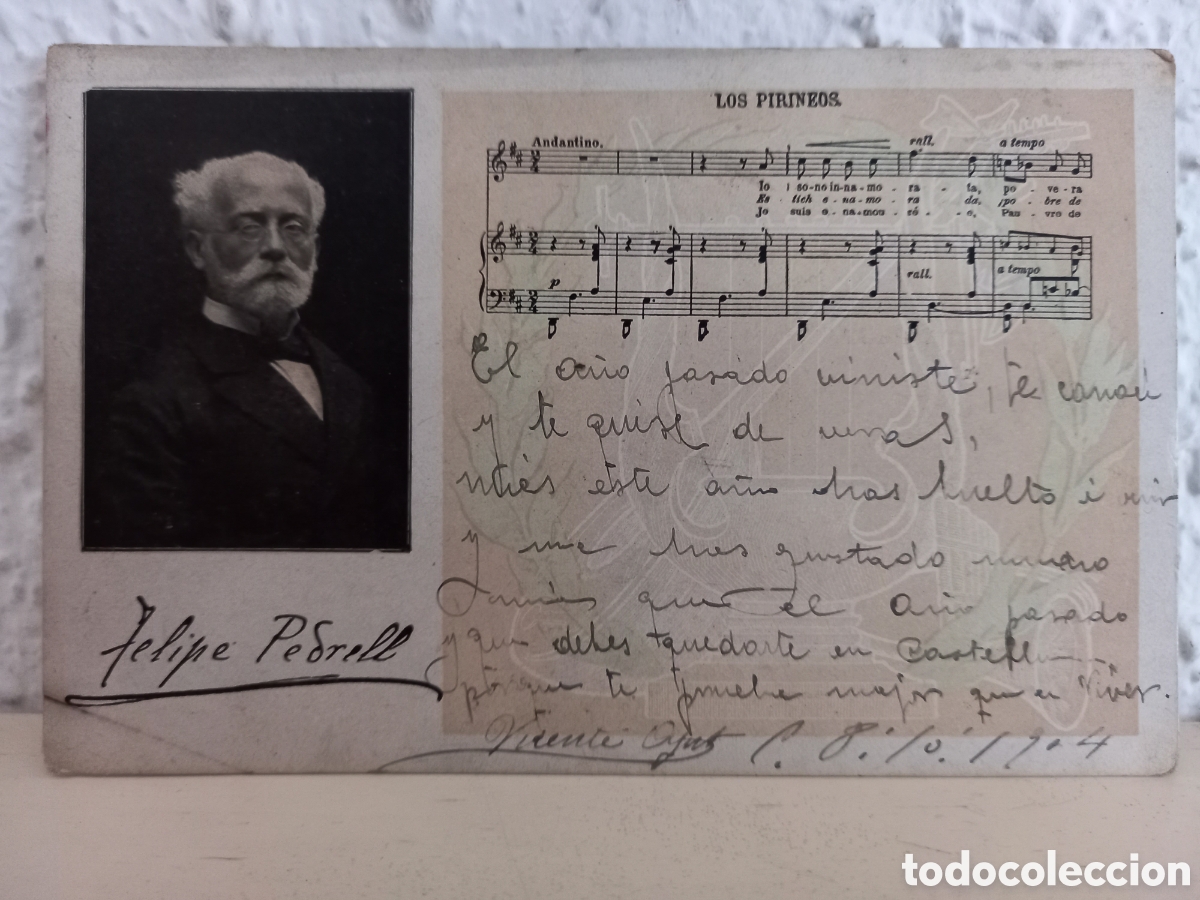 LOS PIRINEOS.
Andantino. rall. a tempo
Io sono in-na-mo-ra-ta, po-ve-ra
Es-tich e-na-mo-ra-da, ¡po-bre de
Je suis e-na-mou-ré-e, Pau-vre de
p rall. a tempo
El año pasado viniste, te conocí
y te quise de veras,
este año has vuelto
y me has gustado mucho
que el año pasado
y que debes quedarte en Castellón
porque te prueba mejor que en Viver.
Vicente 1904
Felipe Pedrell
todocoleccion